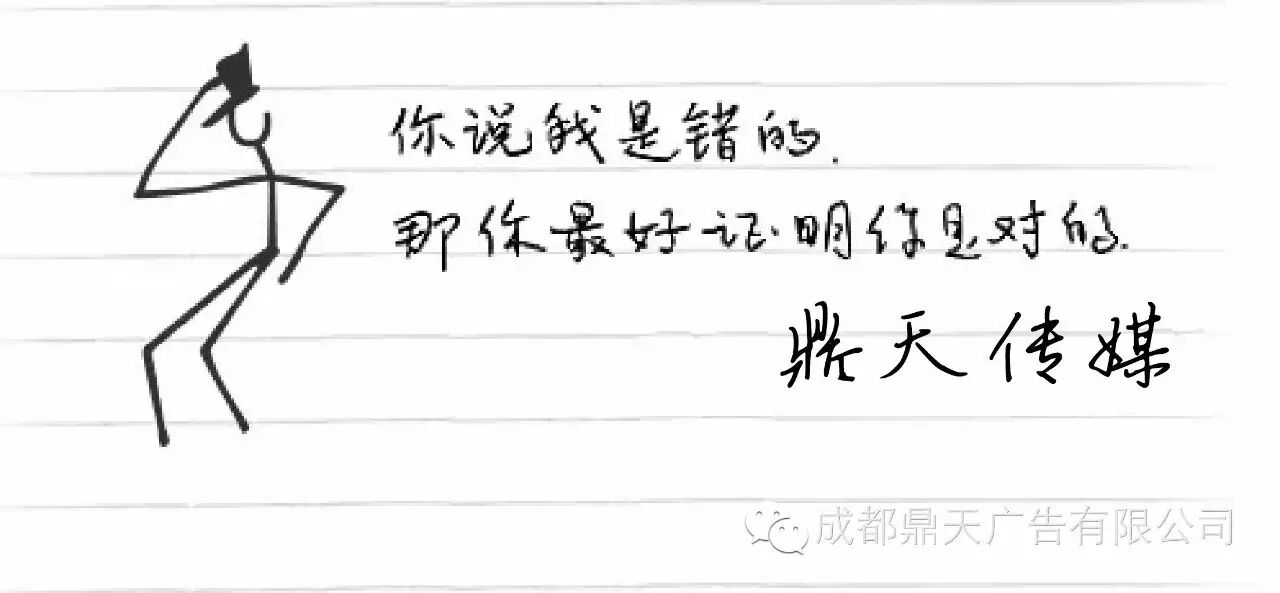 你说我是错的.
那你最好证明你是对的.
鼎天传媒
成都鼎天广告有限公司